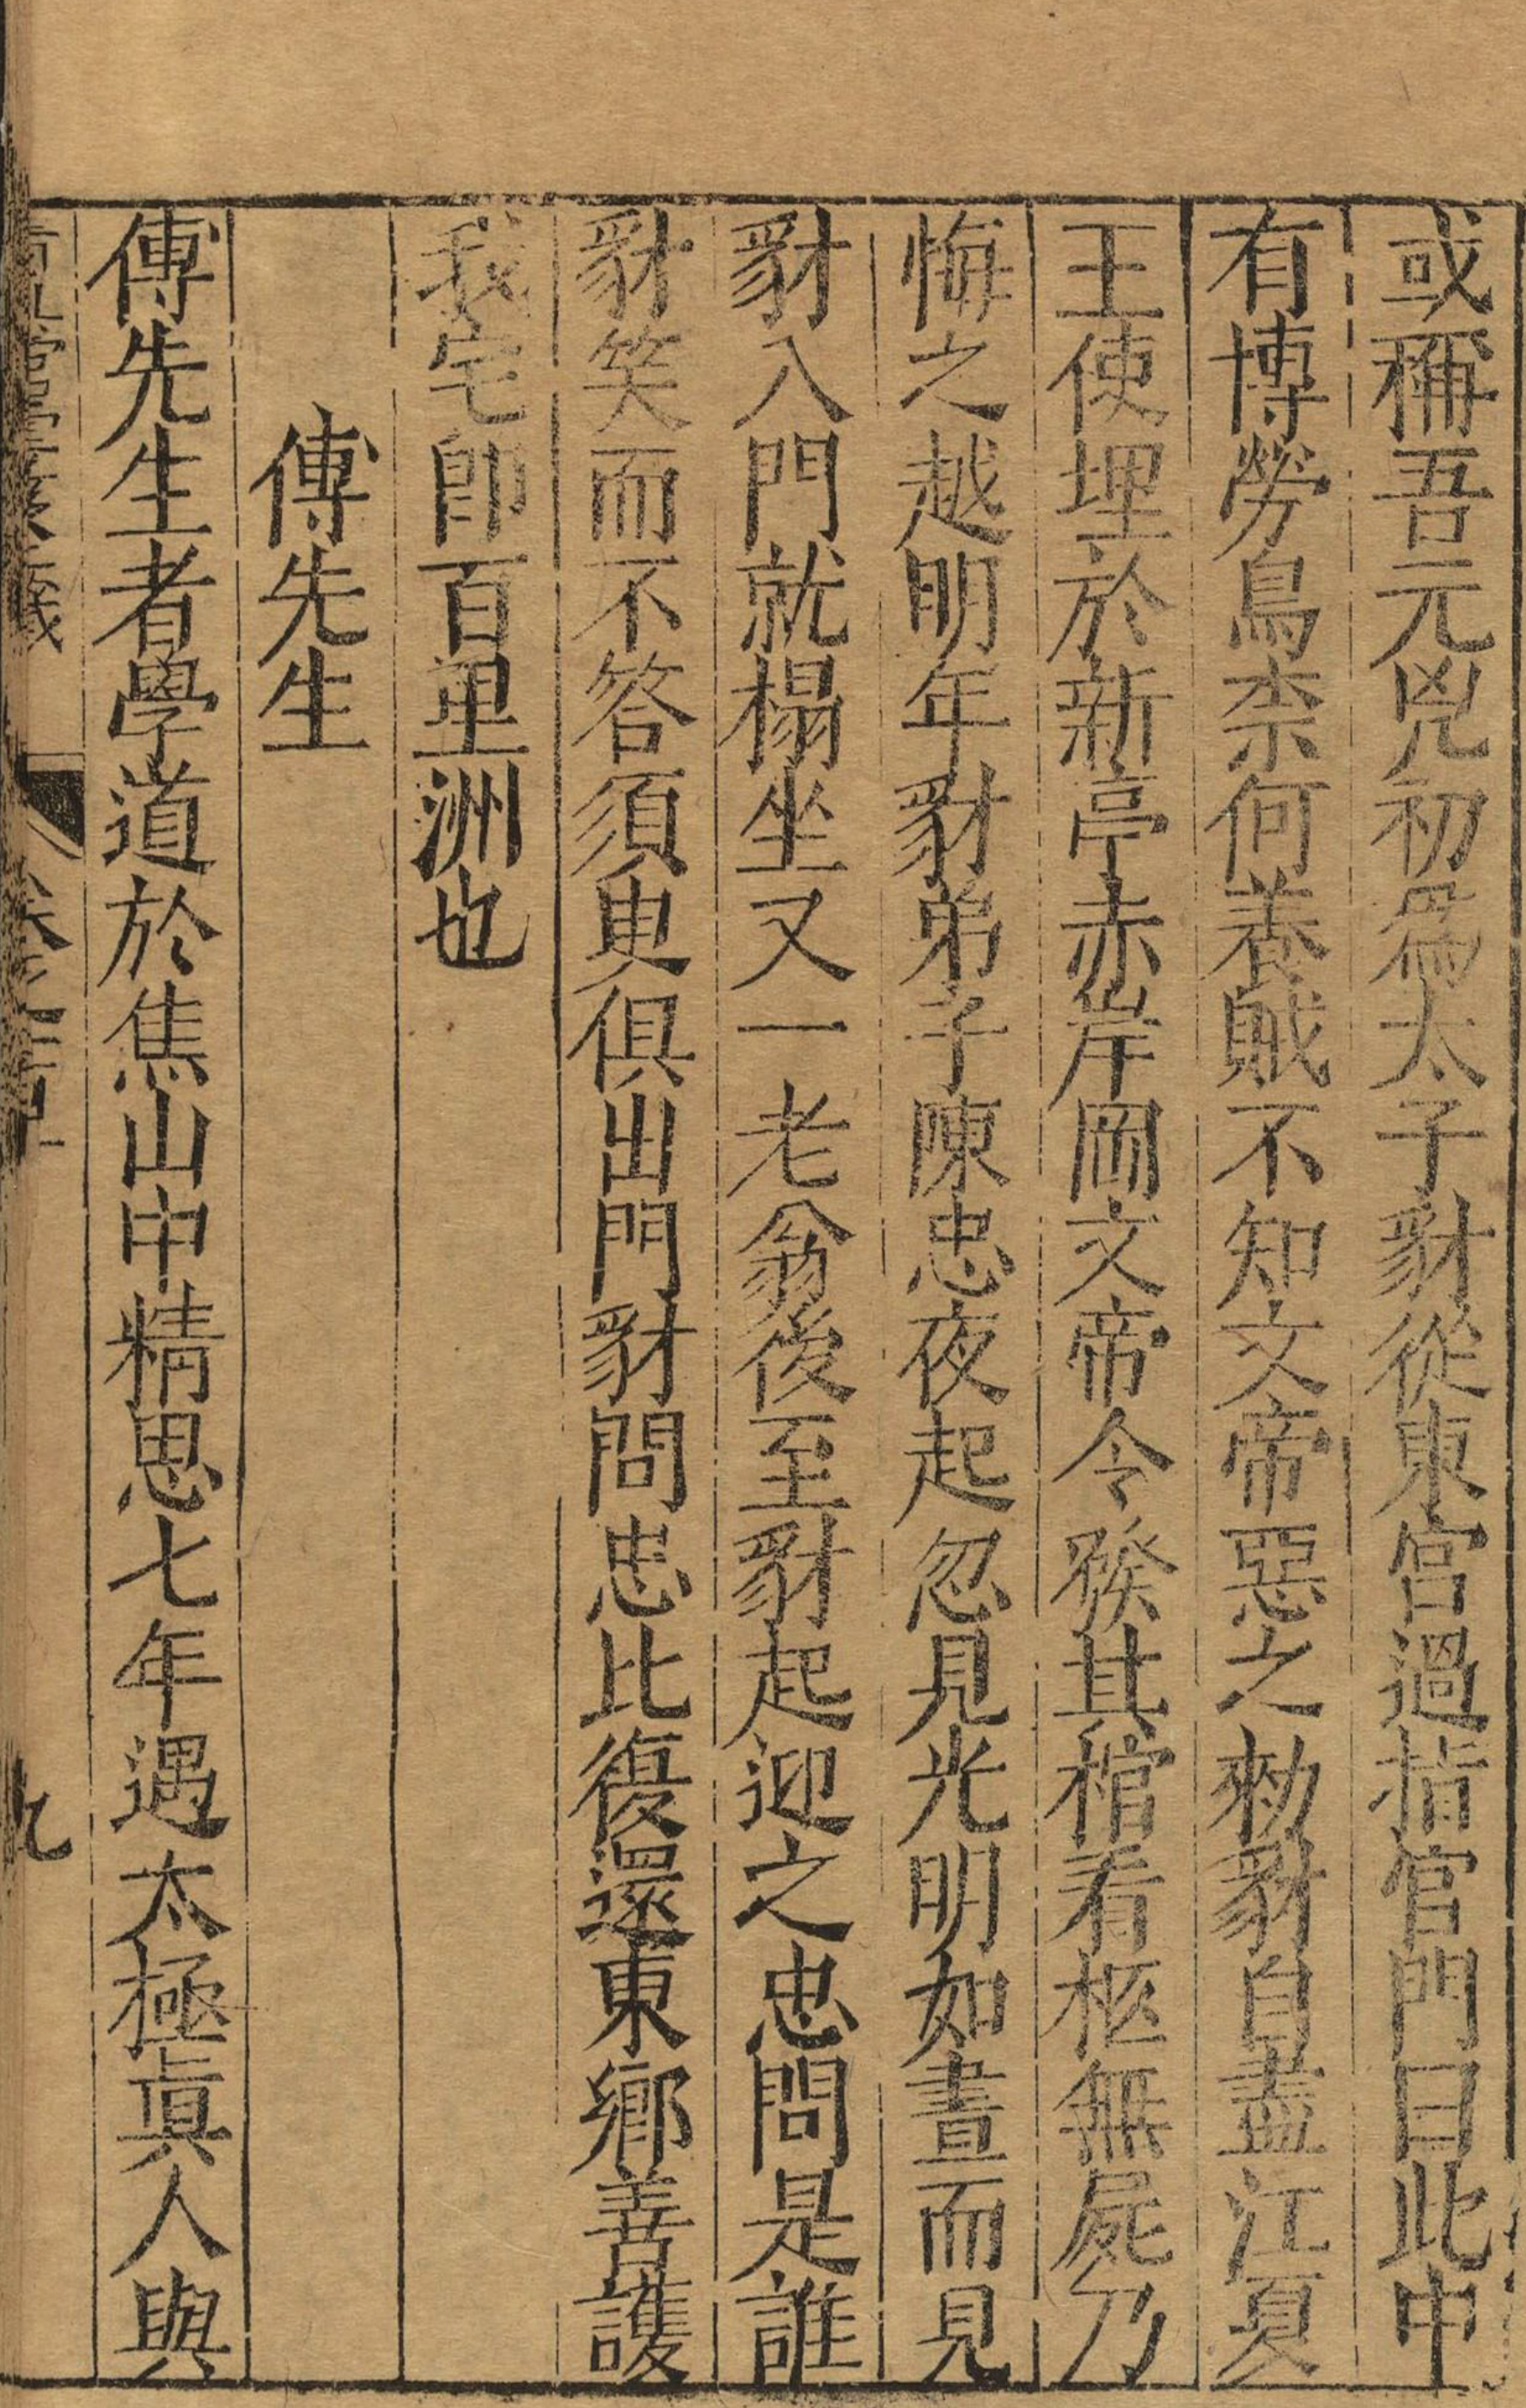 或稱吾元兇初爲太子豺從東宮過指宮門曰此中
有博勞鳥柰何養賊不知文帝惡之勑豺自盡江夏
王使埋於新亭赤岸岡文帝令發其棺看柩無屍乃
悔之越明年豺弟子陳忠夜起忽見光明如晝而見
豺入門就榻坐又一老翁後至豺起迎之忠問是誰
豺笑而不答須臾俱出門豺問忠比復還東鄉善護
我宅卽百里洲也
傅先生
傅先生者學道於焦山中精思七年遇太極眞人與
九